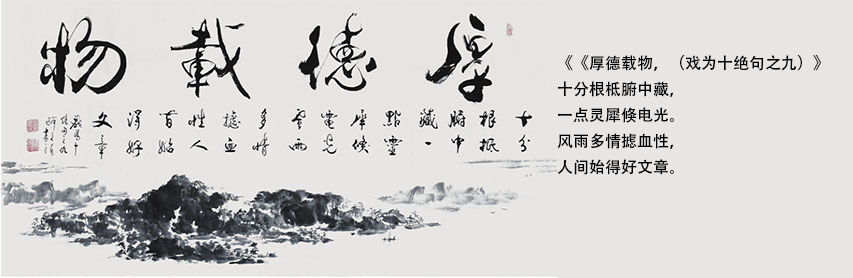 厚德載物
十分
根柢
腑中
藏一
點靈
犀倏
電光
風雨
多情
攄血
性人
间始
得好
文章
《《厚德载物，（戏为十绝句之九）》
十分根柢腑中藏，
一点灵犀倏电光。
风雨多情摅血性，
人间始得好文章。